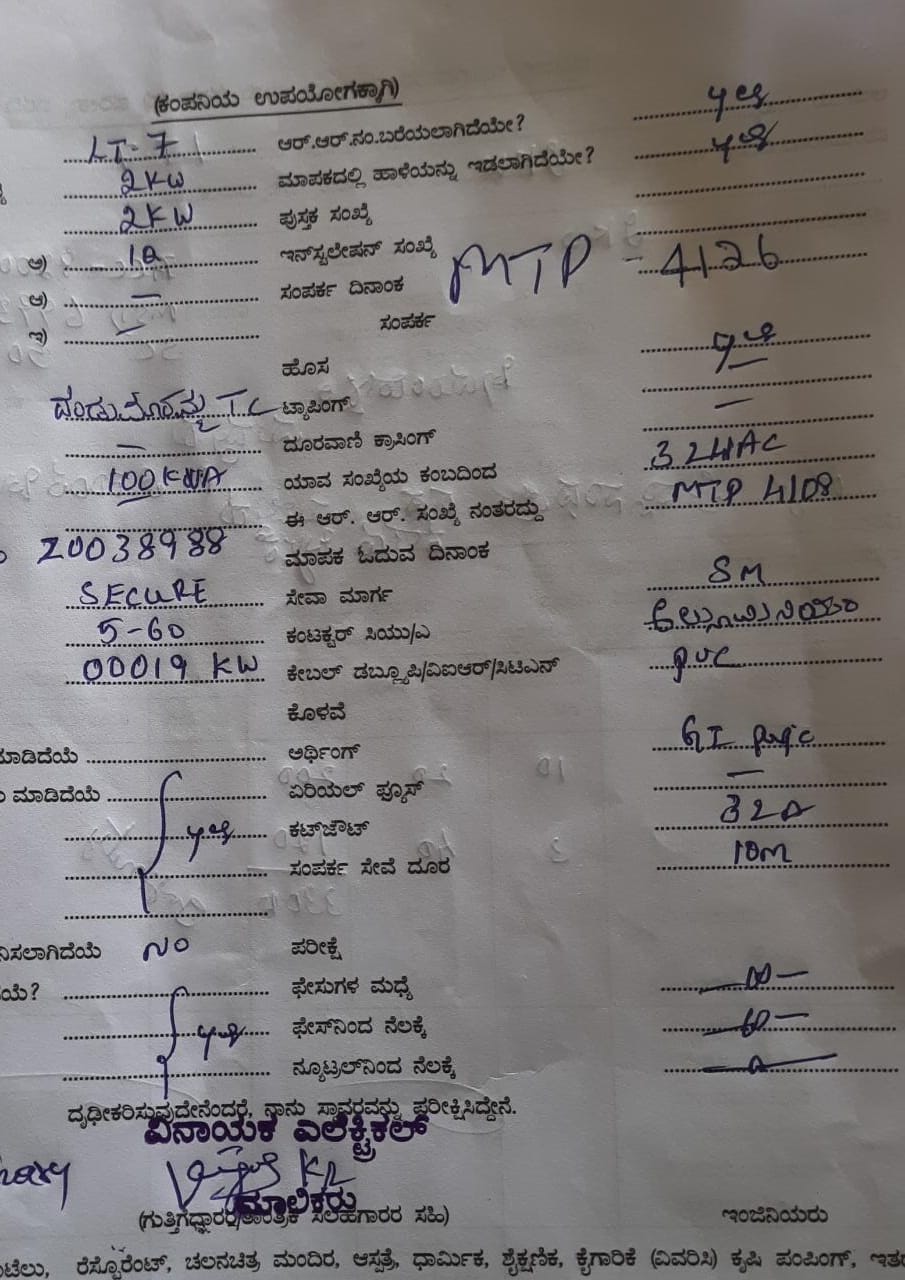 (ಕಂಪನಿಯ ಉಪಯೋಗಕ್ಕಾಗಿ)
LT-7 ಆರ್.ಆರ್.ನಂ.ಬರೆಯಲಾಗಿದೆಯೇ? yes
2KW ಮಾಪಕದಲ್ಲಿ ಹಾಳೆಯನ್ನು ಇಡಲಾಗಿದೆಯೇ? yes
2KW ಪುಸ್ತಕ ಸಂಖ್ಯೆ
ಅ) ಇನ್‌ಸ್ಟಲೇಷನ್ ಸಂಖ್ಯೆ MTP - 4126
ಆ) — ಸಂಪರ್ಕ ದಿನಾಂಕ
ಇ) — ಸಂಪರ್ಕ
ಹೊಸ yes
TC ಟ್ಯಾಪಿಂಗ್ —
— ದೂರವಾಣಿ ಕ್ರಾಸಿಂಗ್
100 KVA ಯಾವ ಸಂಖ್ಯೆಯ ಕಂಬದಿಂದ
ಈ ಆರ್. ಆರ್. ಸಂಖ್ಯೆ ನಂತರದ್ದು MTP 4108
Z0038988 ಮಾಪಕ ಓದುವ ದಿನಾಂಕ
SECURE ಸೇವಾ ಮಾರ್ಗ SM
5-60 ಕಂಟಕ್ಟರ್ ಸಿಯು/ಎ ಅಲ್ಲೂಮಿನಿಯಂ
00019 KW ಕೇಬಲ್ ಡಬ್ಲ್ಯೂಪಿ/ವಿಐಆರ್/ಸಿಟಿಎನ್ PVC
ಕೊಳವೆ
ಮಾಡಿದೆಯೆ ಅರ್ಥಿಂಗ್ GI pipe
ಮಾಡಿದೆಯೆ ಏರಿಯಲ್ ಫ್ಯೂಸ್ —
yes ಕಟ್‌ಜೌಟ್ 32A
ಸಂಪರ್ಕ ಸೇವೆ ದೂರ 10m
ನಿಸಲಾಗಿದೆಯೆ NO ಪರೀಕ್ಷೆ
ಯೆ? ಫೇಸುಗಳ ಮಧ್ಯೆ
yes ಫೇಸ್‌ನಿಂದ ನೆಲಕ್ಕೆ
ನ್ಯೂಟ್ರಲ್‌ನಿಂದ ನೆಲಕ್ಕೆ
ದೃಢೀಕರಿಸುವುದೇನೆಂದರೆ, ನಾನು ಸ್ಥಾವರವನ್ನು ಪರೀಕ್ಷಿಸಿದ್ದೇನೆ.
ವಿನಾಯಕ ಎಲೆಕ್ಟ್ರಿಕಲ್
ಮಾಲಿಕರು
(ಗುತ್ತಿಗೆದ್ದಾರರ/ತಾಂತ್ರಿಕ ಸಲಹಗಾರರ ಸಹಿ) ಇಂಜಿನಿಯರು
ರೆಸ್ಟೊರೆಂಟ್, ಚಲನಚಿತ್ರ ಮಂದಿರ, ಆಸ್ಪತ್ರೆ, ಧಾರ್ಮಿಕ, ಶೈಕ್ಷಣಿಕ, ಕೈಗಾರಿಕೆ (ವಿವರಿಸಿ) ಕೃಷಿ ಪಂಪಿಂಗ್,